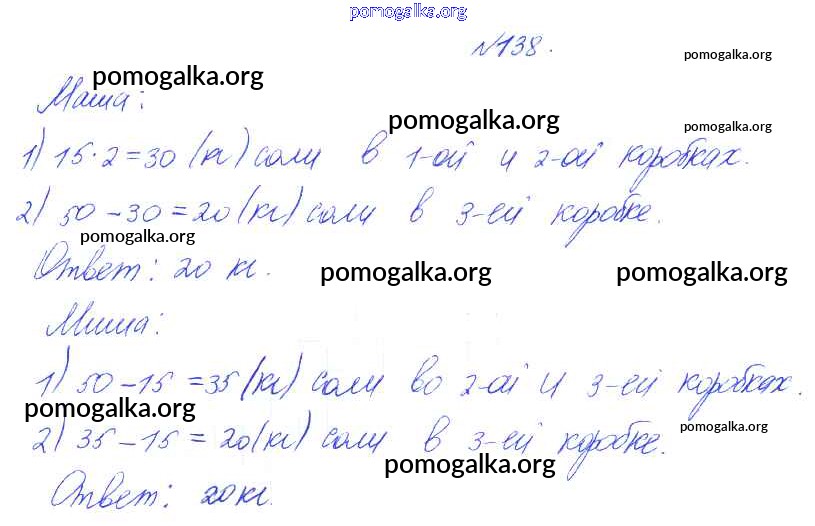 pomogalka.org
№138. pomogalka.org
Маша: pomogalka.org
pomogalka.org pomogalka.org
1) 15·2=30 (кг) соли в 1-ой и 2-ой коробках.
2) 50-30=20 (кг) соли в 3-ей коробке.
pomogalka.org
Ответ: 20 кг. pomogalka.org pomogalka.org
Миша:
1) 50-15=35 (кг) соли во 2-ой и 3-ей коробках.
pomogalka.org
2) 35-15=20 (кг) соли в 3-ей коробке. pomogalka.org
pomogalka.org
Ответ: 20 кг.